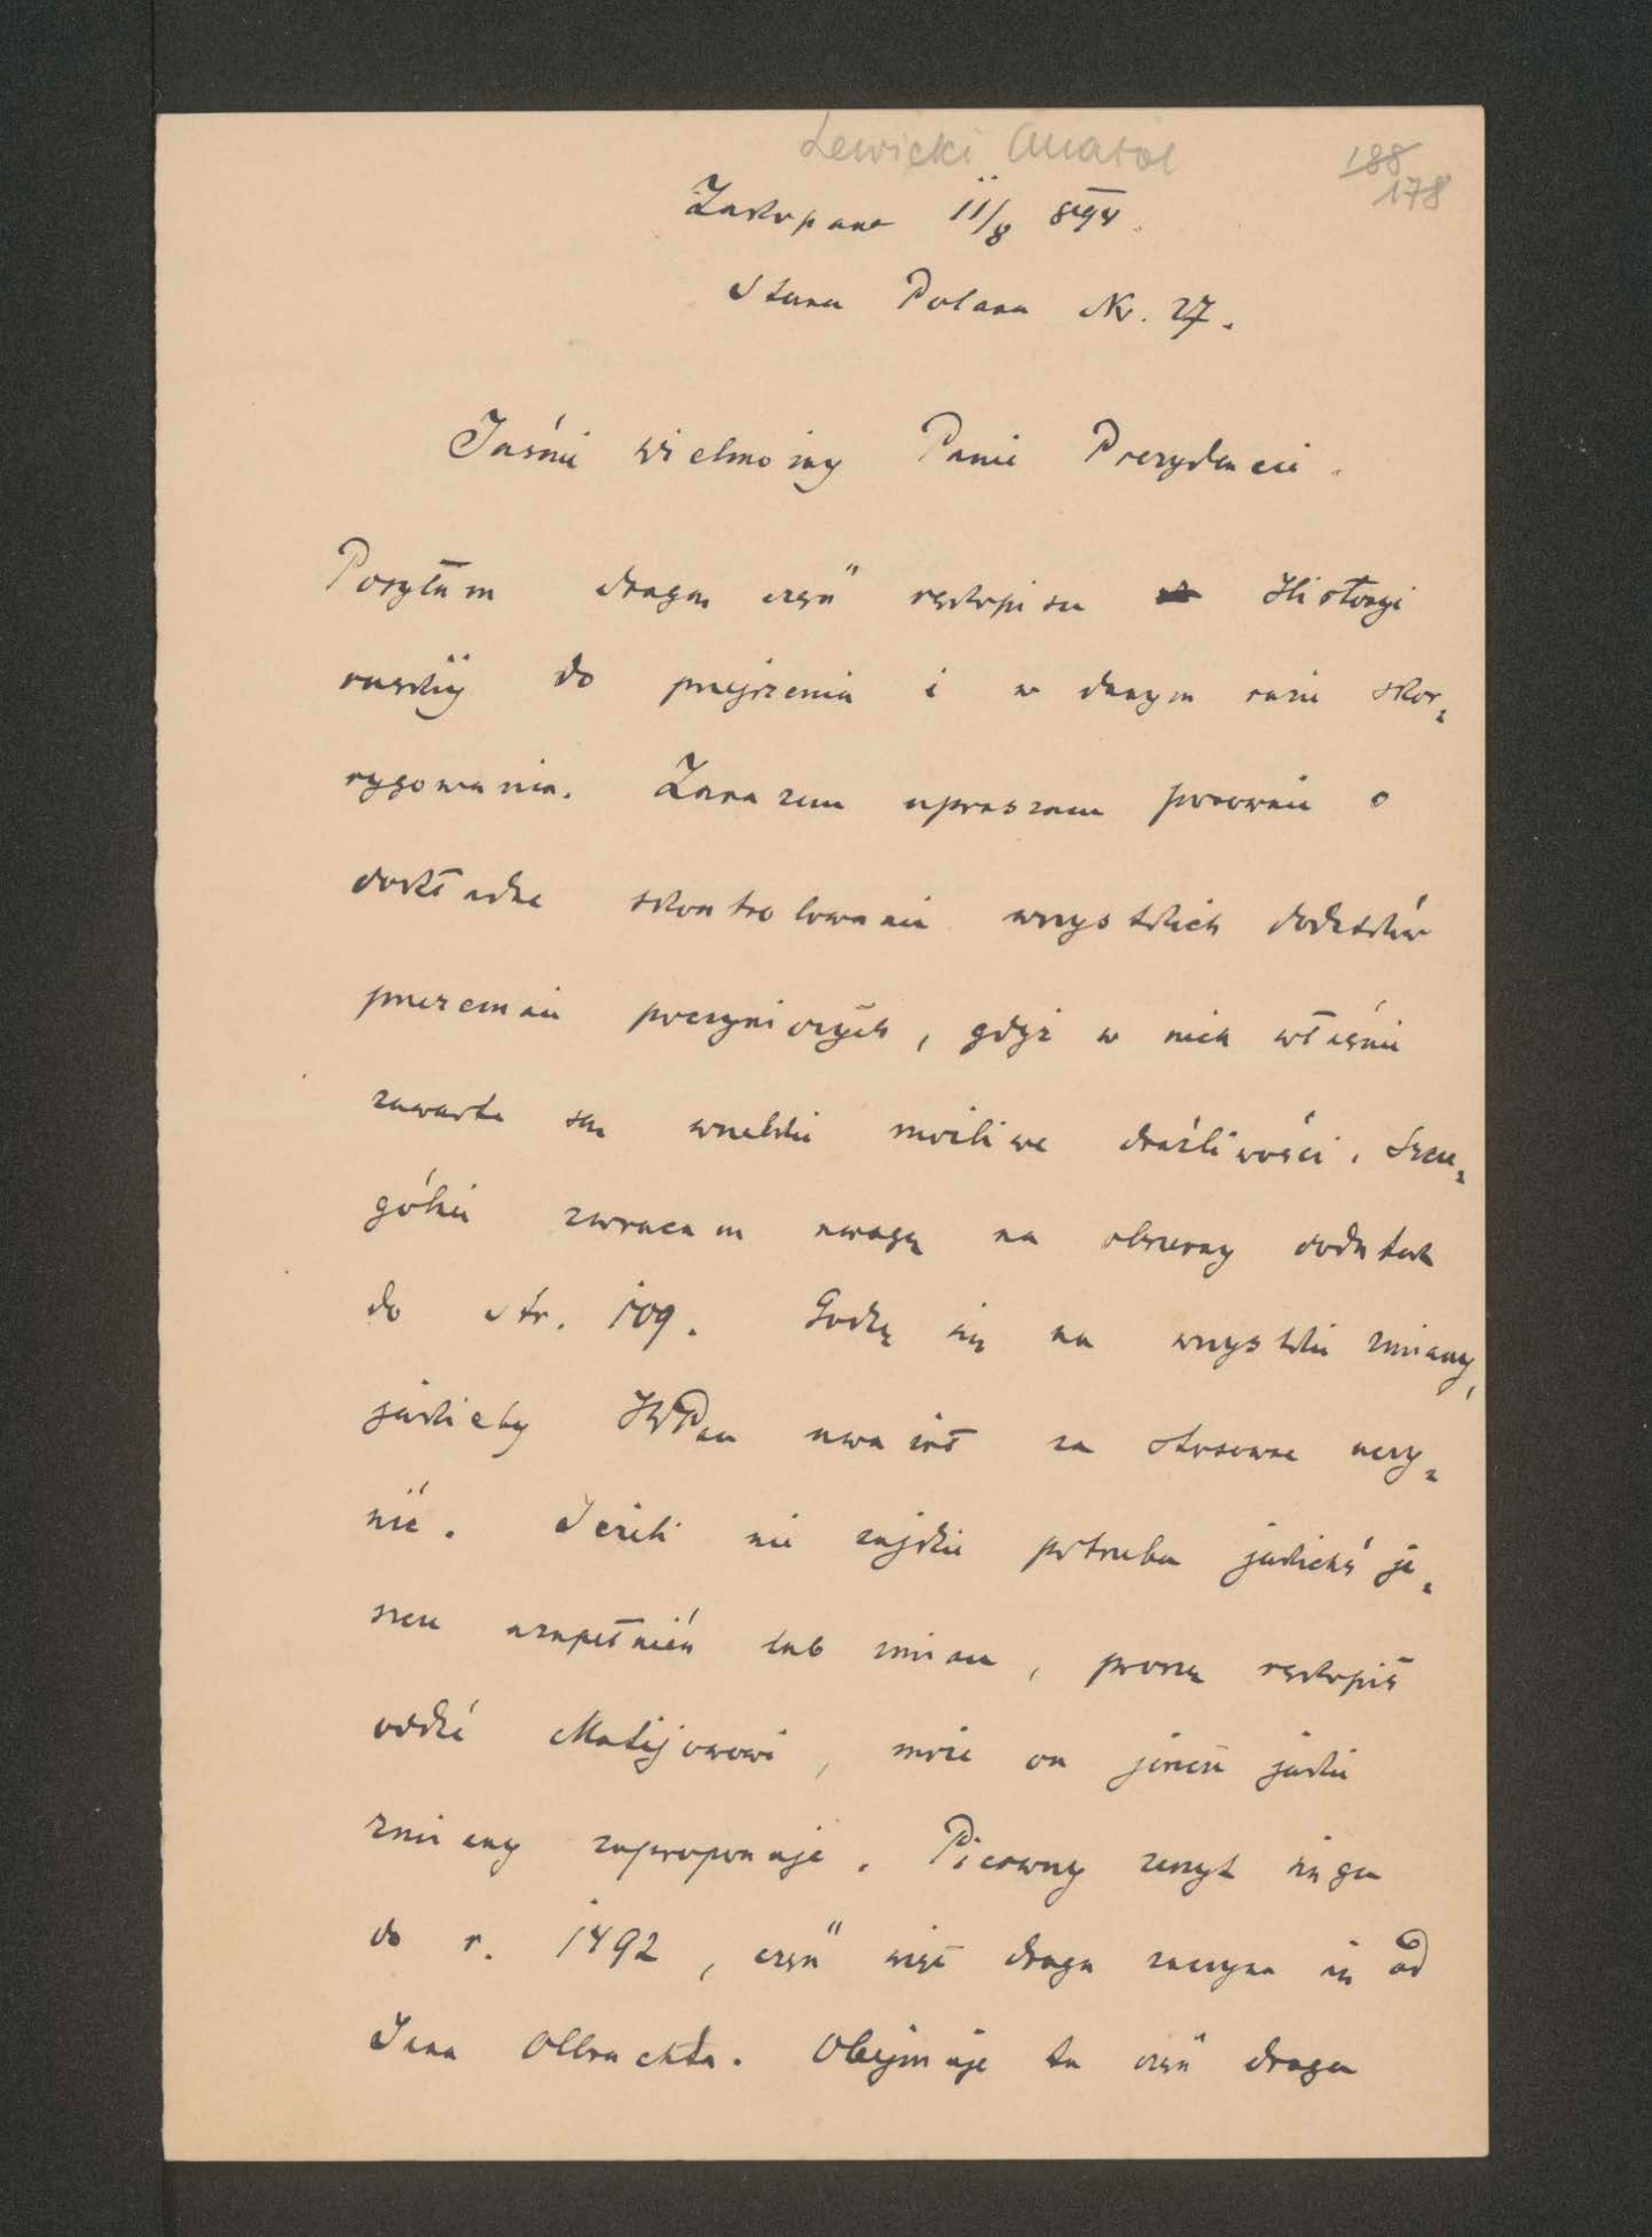 Lewicki Anatol
188
178
Zakopane 11/8 894.
Stara Polana Nr. 27.
Jaśnie Wielmożny Panie Prezydencie.
Posyłam drugą część rękopisu Historyi
ruskiéj do przejrzenia i w danym razie skor-
rygowania. Zarazem upraszam ponownie o
dokładne skontrolowanie wszystkich dodatków
przezemnie poczynionych, gdyż w nich właśnie
zawarte są wszelkie możliwe drażliwości. Szcze-
gólnie zwracam uwagę na obszerny dodatek
do str. 109. Godzę się na wszystkie zmiany,
jakieby JWPan uważał za stosowne uczy-
nić. Jeżeli nie zajdzie potrzeba jakichś je-
szcze uzupełnień lub zmian, proszę rękopis
oddać Matijowowi, może on jeszcze jakie
zmiany zaproponuje. Pierwszy zeszyt sięga
do r. 1492, część więc druga zaczyna się od
Jana Olbrachta. Obejmuje ta część druga